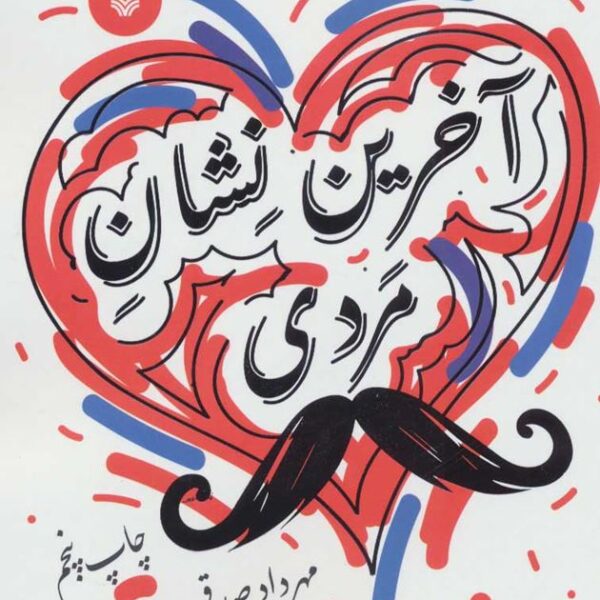 آخرین نِشانِ
مَردی
چاپ پنجم
مهرداد صدقی